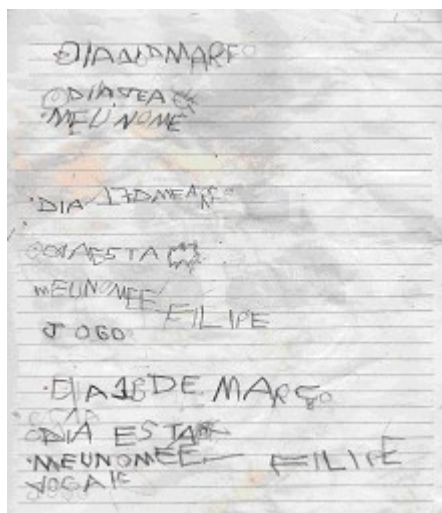 DIA 16 DMARFO
ODIASTEA
MEUNOME
DIA 17DMEARÇO
ODIAESTA
MEUNOMEE FILIPE
JOGO
DIA 18 DE MARÇO
ODIA ESTA
MEUNOMEE FILIPE